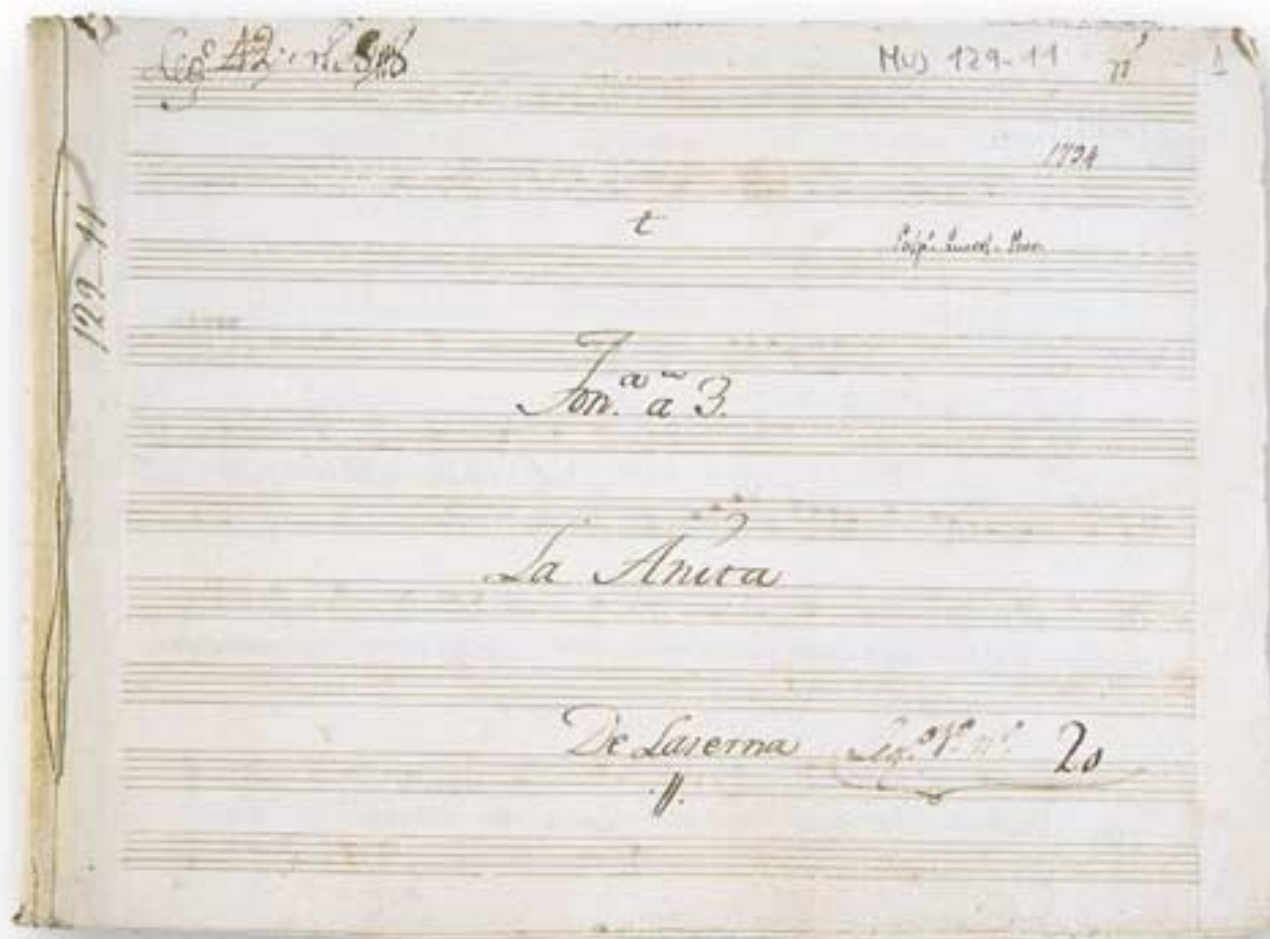 Leg.º 42. n.º
Mus 129-11
1
129-11
t
Ton.ª a 3.
La Anita
De Laserna Leg.º 1.º n.º 20